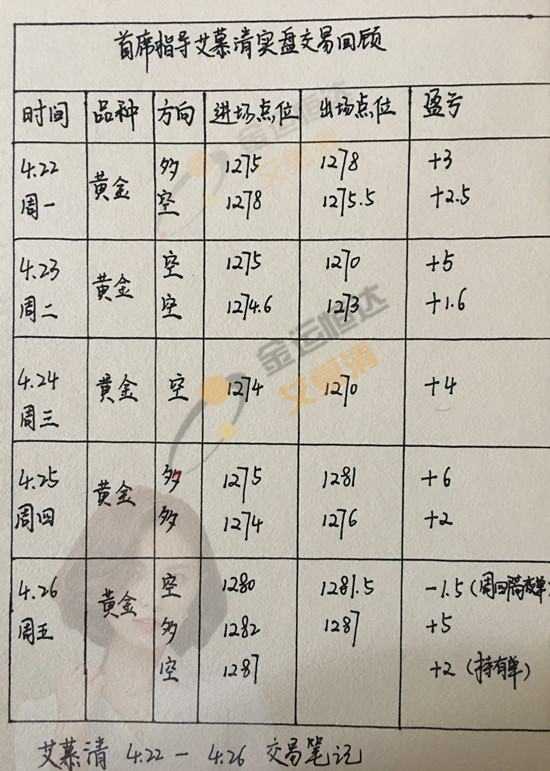 首席指导艾慕清实盘交易回顾
时间 品种 方向 进场点位 出场点位 盈亏
4.22 周一 黄金 多 1275 1278 +3
空 1278 1275.5 +2.5
4.23 周二 黄金 空 1275 1270 +5
空 1274.6 1273 +1.6
4.24 周三 黄金 空 1274 1270 +4
4.25 周四 黄金 多 1275 1281 +6
多 1274 1276 +2
4.26 周五 黄金 空 1280 1281.5 -1.5(周四隔夜单)
多 1282 1287 +5
空 1287 +2(持有单)
艾慕清 4.22-4.26 交易笔记
金运恒达
艾慕清
金运恒达
艾慕清